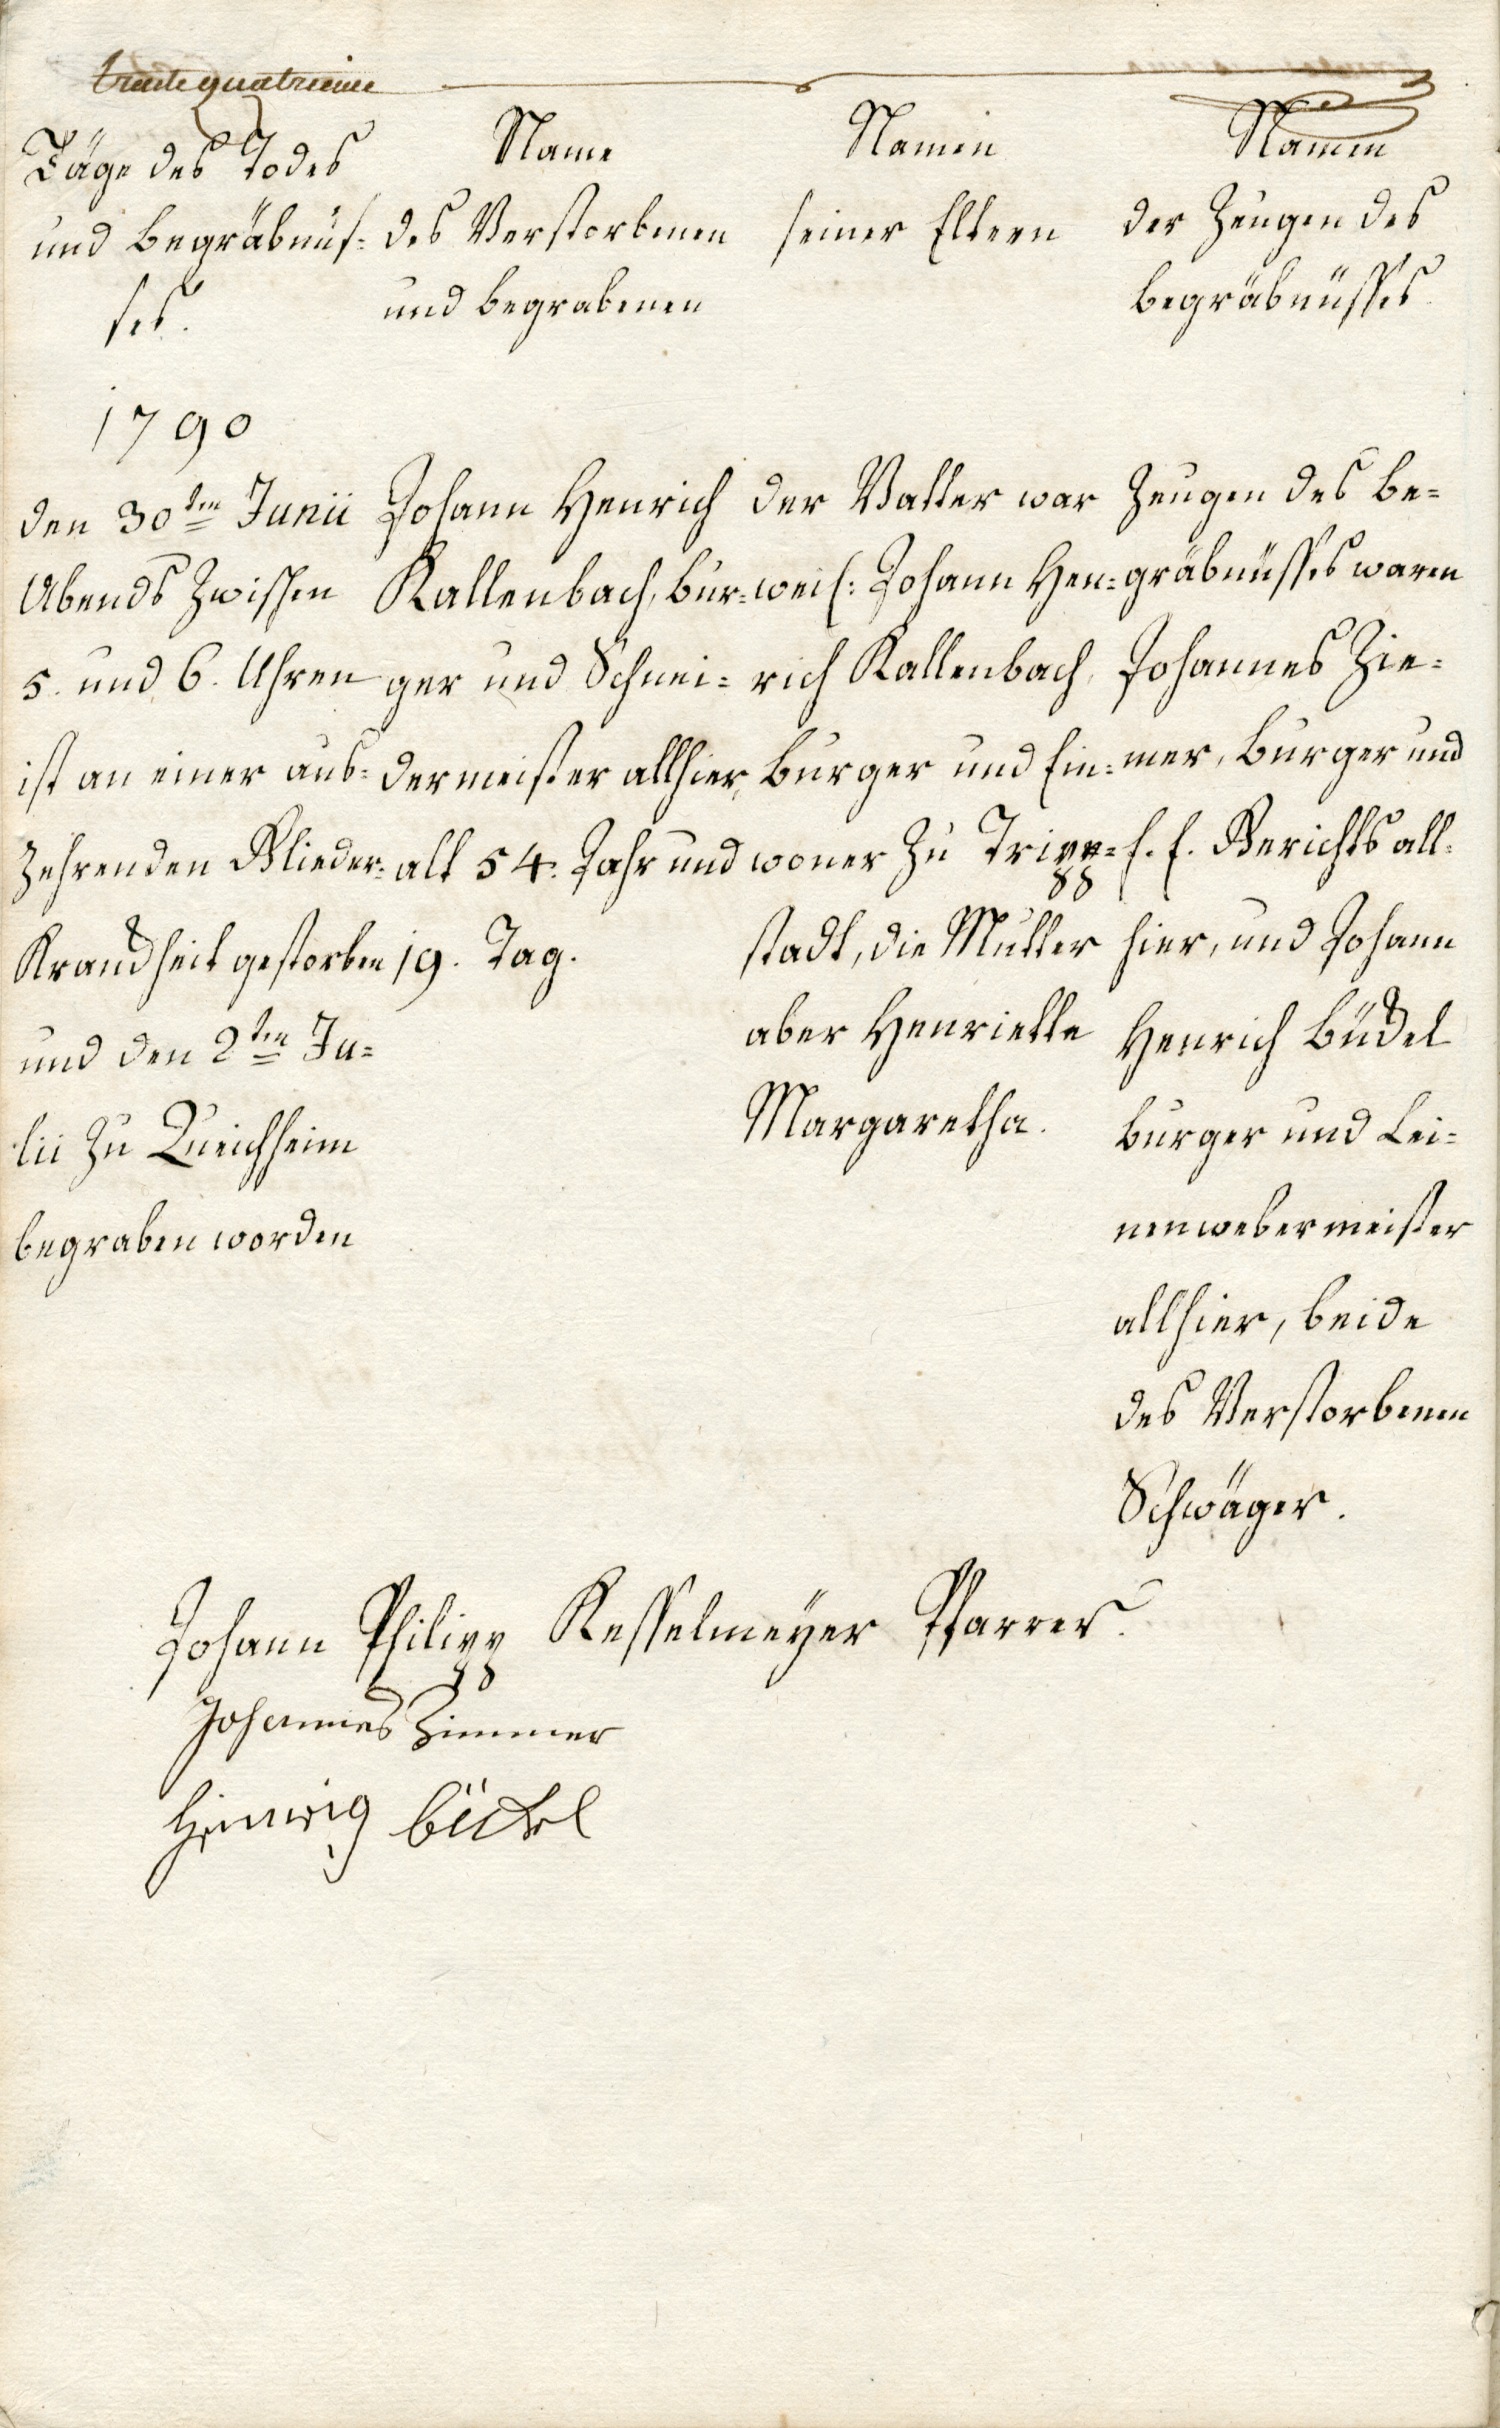 trentequatrieme
Täge des Todes
und Begräbnüs=
ses.
Name
des Verstorbenen
und begrabenen
Namen
seiner Eltern
Namen
der Zeugen des
Begräbnüsses
1790
den 30ten Junii
Abends zwischen
5. und 6. Uhren
ist an einer aus=
zehrenden Glieder=
Kranckheit gestorben
und den 2ten Ju=
lii zu Queichheim
begraben worden
Johann Henrich
Kallenbach, Bur=
ger und Schnei=
dermeister allhier,
alt 54. Jahr und
19. Tag.
der Vatter war
weil: Johann Hen=
rich Kallenbach,
Burger und Ein=
woner zu Tripp=
stadt, die Mutter
aber Henriette
Margaretha.
Zeugen des Be=
gräbnüsses waren
Johannes Zim=
mer, Burger und
E. E. Gerichts all=
hier, und Johann
Henrich Bückel
Burger und Lei=
nenwebermeister
allhier, beide
des Verstorbenen
Schwäger.
Johann Philipp Kesselmeÿer Pfarrer.
Johannes Zimmer
bückel